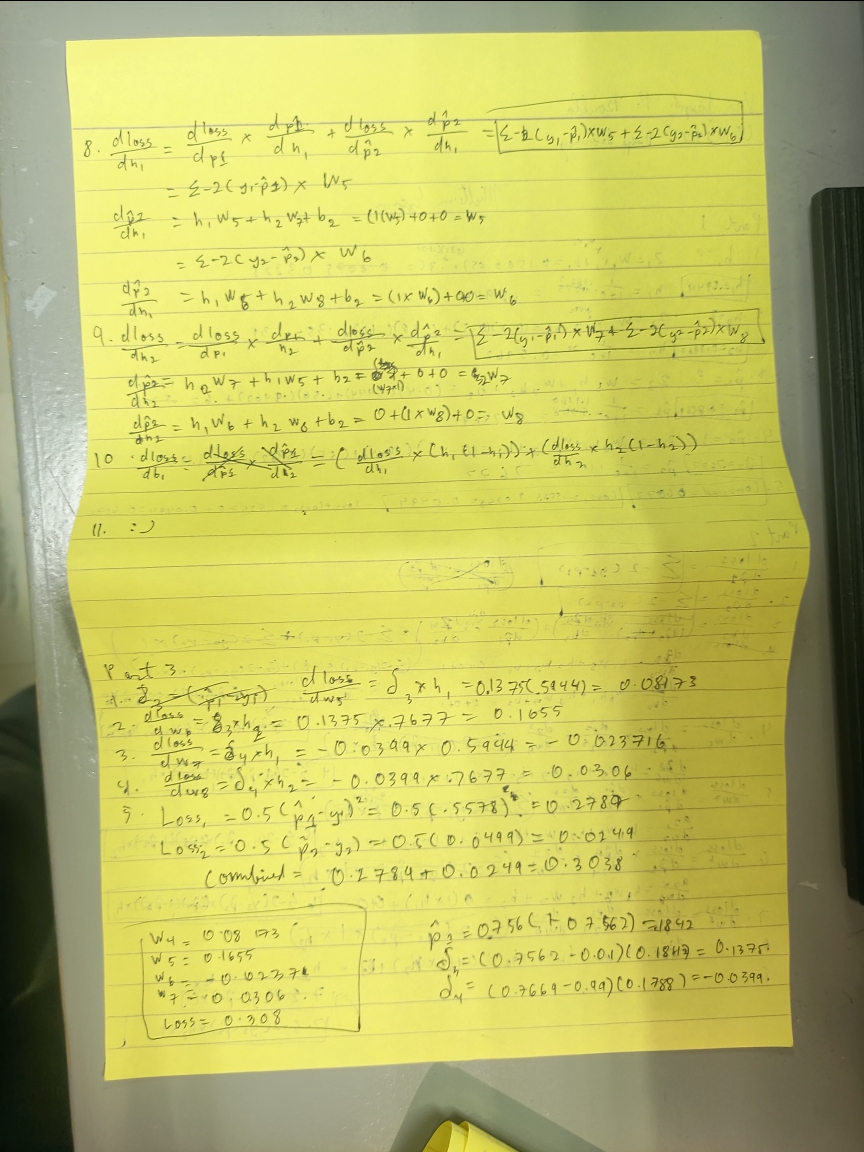 8. dloss/dh₁ = dloss/dp1 × dp̂1/dh₁ + dloss/dp̂2 × dp̂2/dh₁ = Σ-2(y₁-p̂₁)×W5 + Σ-2(y2-p̂2)×W6
= Σ-2(y₁-p̂1) × W5
dp̂2/dh₁ = h₁W5 + h2W7 + b2 = (1(W5)+0+0 = W5
= Σ-2(y2-p̂2) × W6
dp̂2/dh₁ = h₁W6 + h2W8 + b2 = (1×W6)+00 = W6
9. dloss/dh2 = dloss/dp₁ × dp₁/h2 + dloss/dp̂2 × dp̂2/dh₁ = Σ-2(y₁-p̂₁)×W7 + Σ-2(y2-p̂2)×W8
dp̂2/dh2 = h2W7 + h₁W5 + b2 = (W7×1) + 0 + 0 = W7
dp̂2/dh2 = h₁W6 + h2W8 + b2 = 0+(1×W8)+0 = W8
10. dloss/db₁ = dloss/dp̂1 × dp̂1/dh2 = (dloss/dh₁ × (h₁(1-h₁)) + (dloss/dh2 × h2(1-h2))
11. :)
Part 3.
1. dloss/dw5 = δ3×h₁ = 0.1375(.5944) = 0.08173
2. dloss/dw6 = δ3×h2 = 0.1375×.7677 = 0.1655
3. dloss/dw7 = δ4×h₁ = -0.0399×0.5944 = -0.023716
4. dloss/dw8 = δ4×h2 = -0.0399×.7677 = 0.0306
5. Loss₁ = 0.5(p̂1-y₁)² = 0.5(.5578)² = 0.2789
Loss2 = 0.5(p̂2-y2) = 0.5(0.0499) = 0.0249
Combined = 0.2789+0.0249 = 0.3038
W4 = 0.08173
W5 = 0.1655
W6 = -0.02371
W7 = -0.0306
Loss = 0.308
p̂2 = 0.756(1-0.7562) = .1842
δ3 = (0.7562-0.01)(0.1842) = 0.1375
δ4 = (0.7669-0.99)(0.1788) = -0.0399.